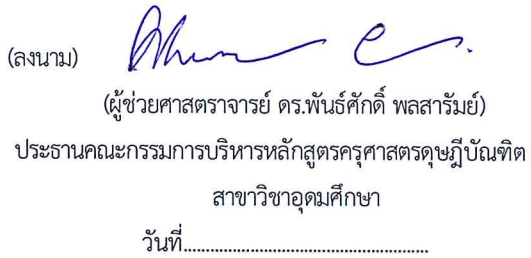 (ลงนาม)
(ผู้ช่วยศาสตราจารย์ ดร.พันธ์ศักดิ์ พลสารัมย์)
ประธานคณะกรรมการบริหารหลักสูตรครุศาสตรดุษฎีบัณฑิต
สาขาวิชาอุดมศึกษา
วันที่.................................................